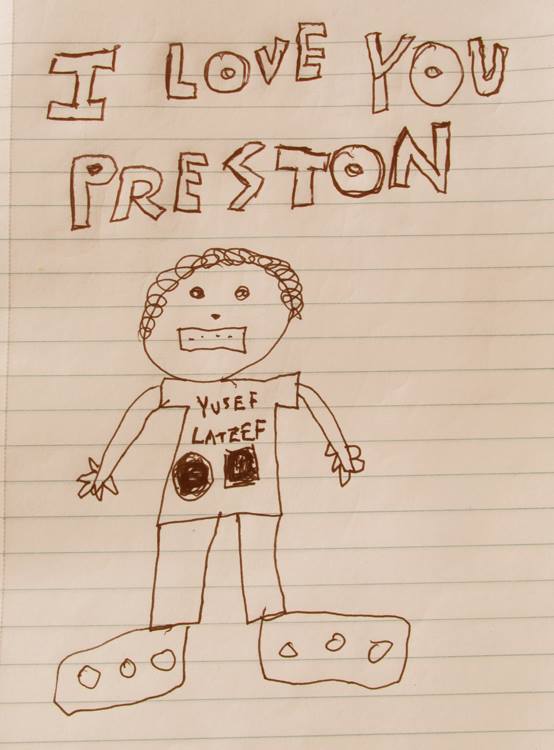 I LOVE YOU
PRESTON
YUSEF
LATEEF